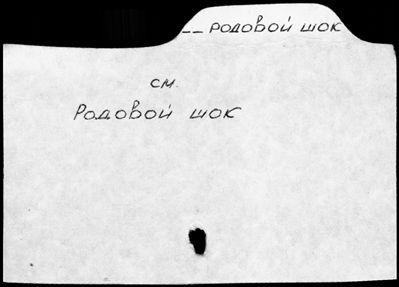 -- РОДОВОЙ ШОК
см.
Родовой шок